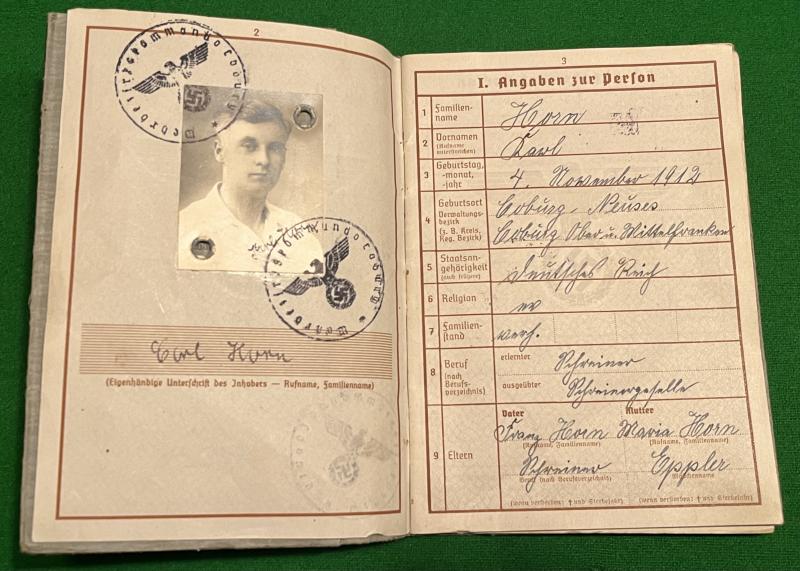 2
Wehrbezirkskommando Coburg
Wehrbezirkskommando Coburg
Carl Horn
(Eigenhändige Unterschrift des Inhabers — Rufname, Familienname)
3
I. Angaben zur Person
1 Familien-
name
Horn
2 Vornamen
(Rufname
unterstreichen)
Karl
3 Geburtstag,
-monat,
-jahr
4. November 1912
4 Geburtsort
Verwaltungs-
bezirk
(z. B. Kreis,
Reg. Bezirk)
Coburg-Neuses
Coburg Ober u. Mittelfranken
5 Staatsan-
gehörigkeit
(auch frühere)
Deutsches Reich
6 Religion
ev
7 Familien-
stand
verh.
8 Beruf
(nach
Berufs-
verzeichnis)
erlernter
Schreiner
ausgeübter
Schreinergeselle
9 Eltern
Vater Mutter
Franz Horn Maria Horn
(Rufname, Familienname) (Rufname, Familienname)
Schreiner Eppler
Beruf (nach Berufsverzeichnis) Mädchenname
(wenn verstorben: † und Sterbejahr) (wenn verstorben: † und Sterbejahr)